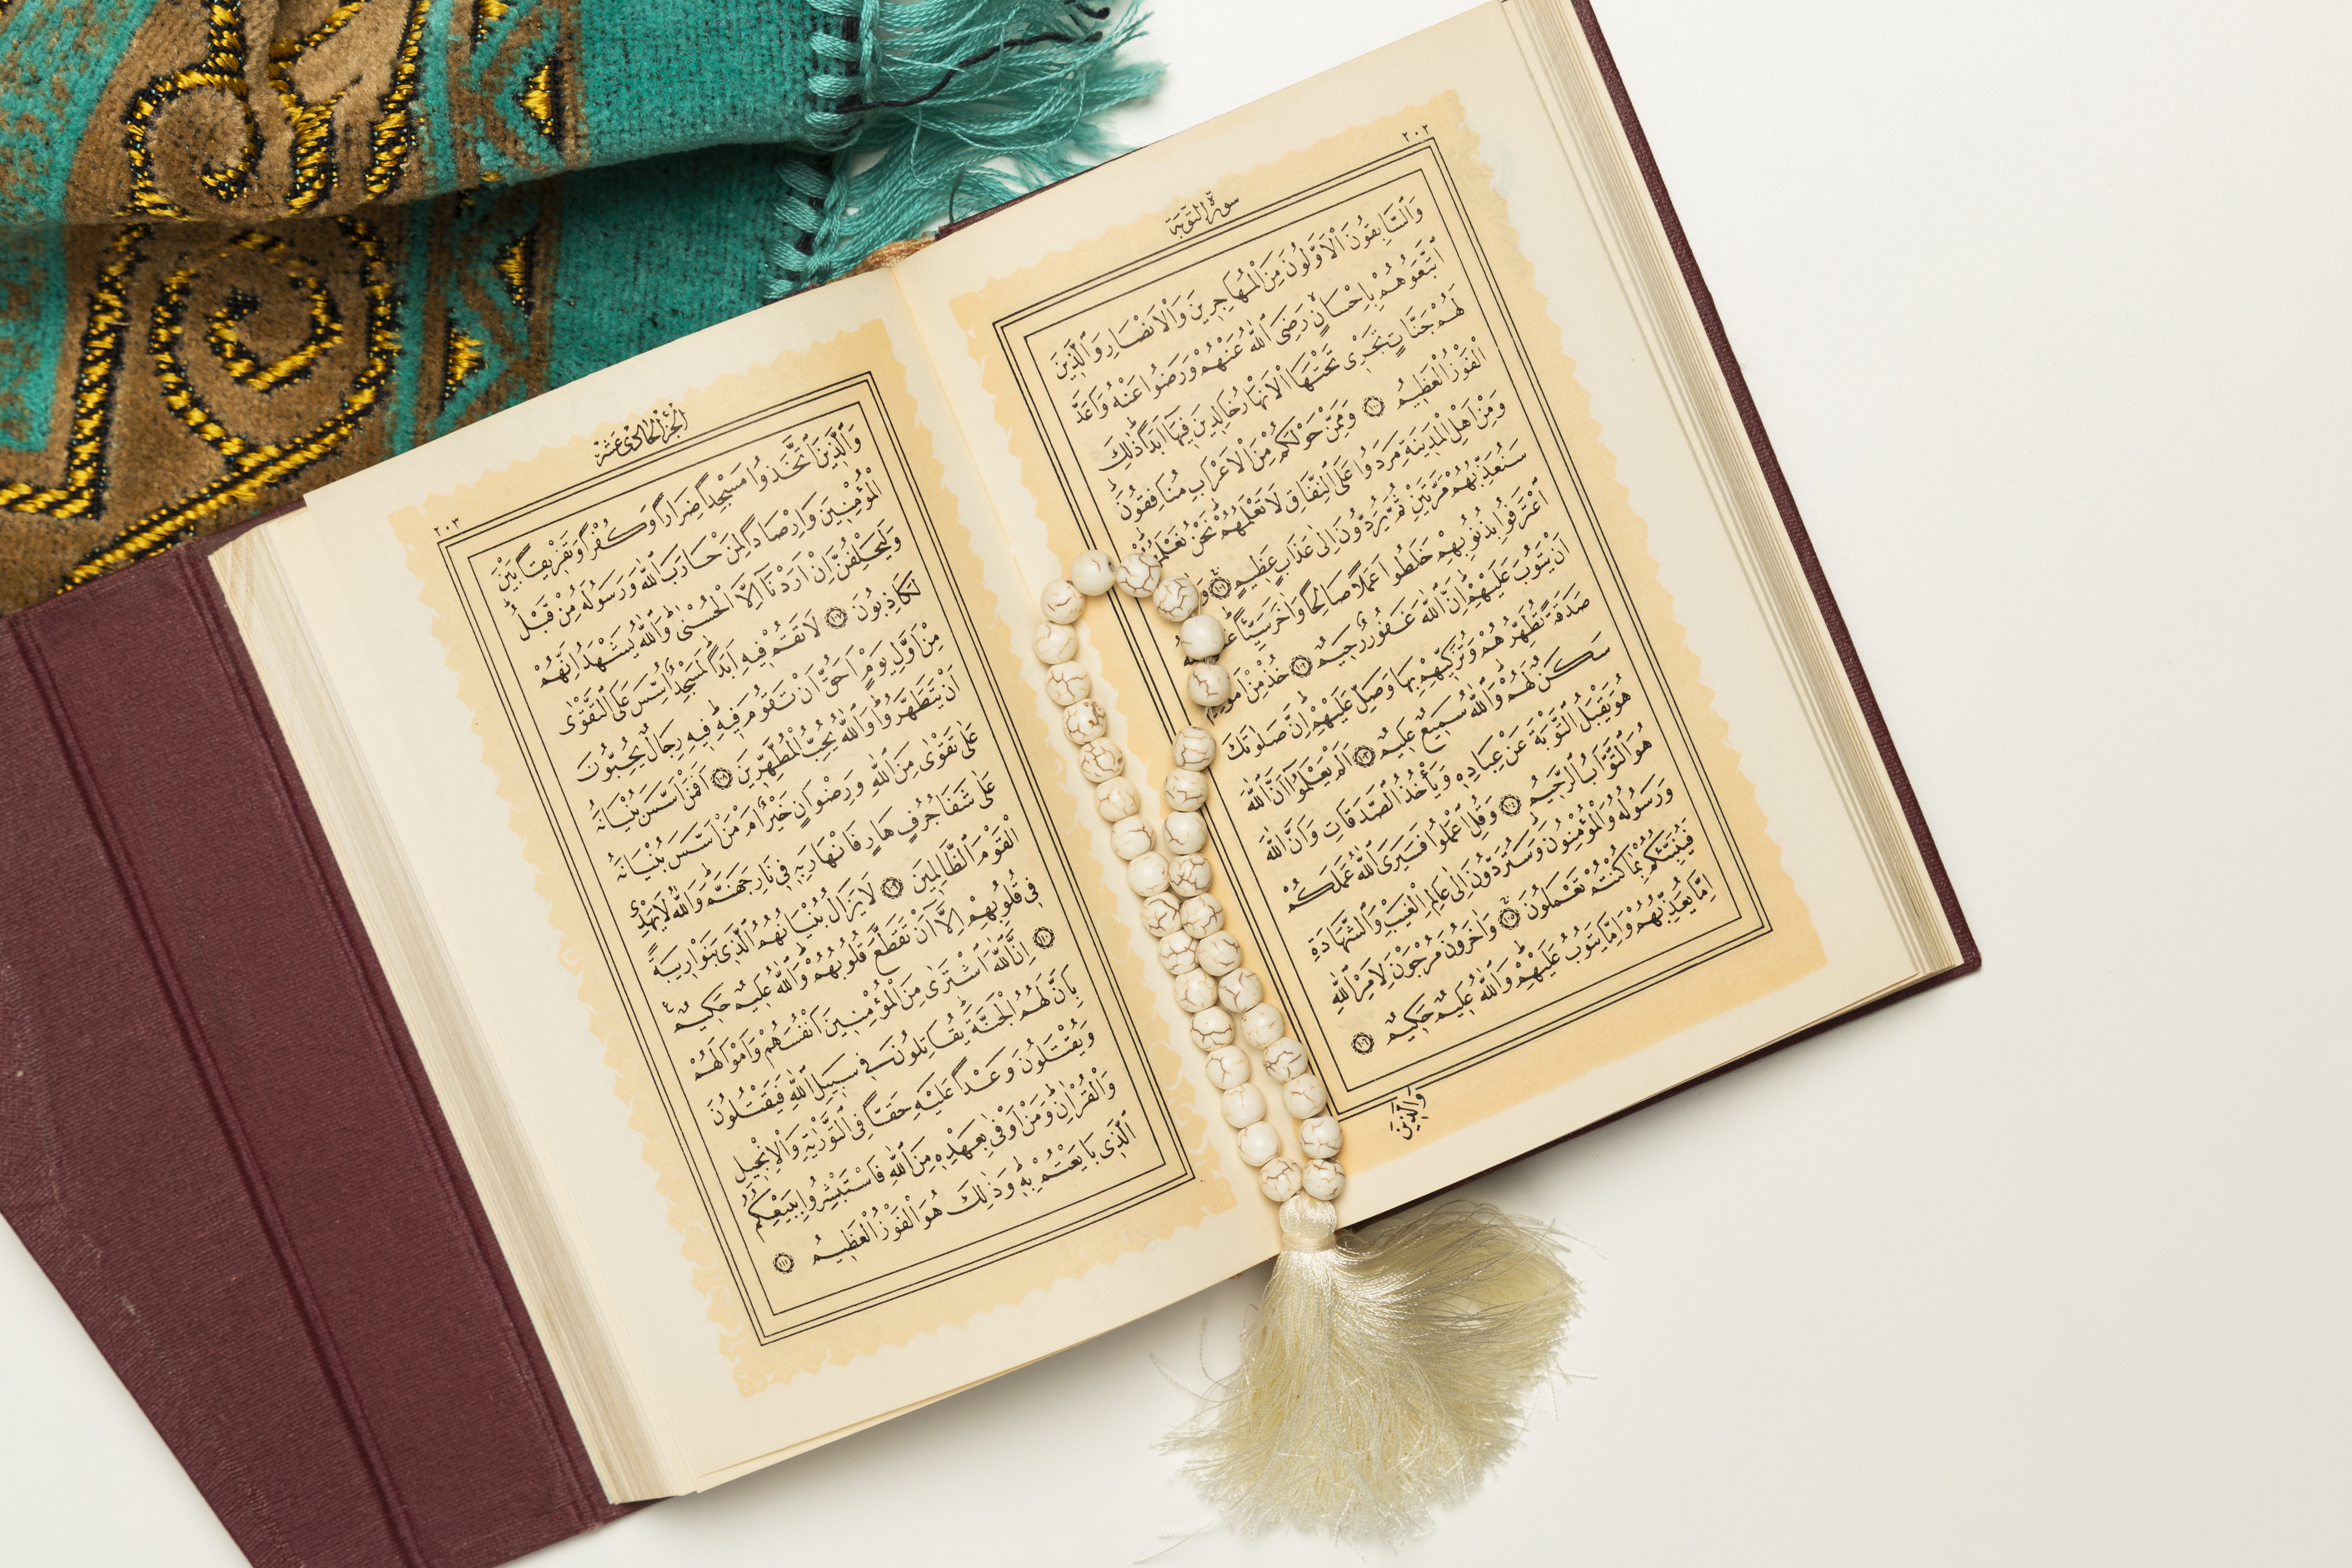 ٢٠٢
سورة التوبة
وَالسَّابِقُونَ الْاَوَّلُونَ مِنَ الْمُهَاجِرِينَ وَالْاَنْصَارِ وَالَّذِينَ
اتَّبَعُوهُمْ بِاِحْسَانٍ رَضِيَ اللّٰهُ عَنْهُمْ وَرَضُوا عَنْهُ وَاَعَدَّ
لَهُمْ جَنَّاتٍ تَجْرِى تَحْتَهَا الْاَنْهَارُ خَالِدِينَ فِيهَا اَبَدًا ذٰلِكَ
الْفَوْزُ الْعَظِيمُ ١٠٠ وَمِمَّنْ حَوْلَكُمْ مِنَ الْاَعْرَابِ مُنَافِقُونَ
وَمِنْ اَهْلِ الْمَدِينَةِ مَرَدُوا عَلَى النِّفَاقِ لَا تَعْلَمُهُمْ نَحْنُ نَعْلَمُهُمْ
سَنُعَذِّبُهُمْ مَرَّتَيْنِ ثُمَّ يُرَدُّونَ اِلٰى عَذَابٍ عَظِيمٍ ١٠١
اعْتَرَفُوا بِذُنُوبِهِمْ خَلَطُوا عَمَلًا صَالِحًا وَاٰخَرَ سَيِّئًا
اَنْ يَتُوبَ عَلَيْهِمْ اِنَّ اللّٰهَ غَفُورٌ رَحِيمٌ ١٠٢ خُذْ مِنْ اَمْوَالِهِمْ
صَدَقَةً تُطَهِّرُهُمْ وَتُزَكِّيهِمْ بِهَا وَصَلِّ عَلَيْهِمْ اِنَّ صَلٰوتَكَ
سَكَنٌ لَهُمْ وَاللّٰهُ سَمِيعٌ عَلِيمٌ ١٠٣ اَلَمْ يَعْلَمُوا اَنَّ اللّٰهَ
هُوَ يَقْبَلُ التَّوْبَةَ عَنْ عِبَادِهِ وَيَأْخُذُ الصَّدَقَاتِ وَاَنَّ اللّٰهَ
هُوَ التَّوَّابُ الرَّحِيمُ ١٠٤ وَقُلِ اعْمَلُوا فَسَيَرَى اللّٰهُ عَمَلَكُمْ
وَرَسُولُهُ وَالْمُؤْمِنُونَ وَسَتُرَدُّونَ اِلٰى عَالِمِ الْغَيْبِ وَالشَّهَادَةِ
فَيُنَبِّئُكُمْ بِمَا كُنْتُمْ تَعْمَلُونَ ١٠٥ وَاٰخَرُونَ مُرْجَوْنَ لِاَمْرِ اللّٰهِ
اِمَّا يُعَذِّبُهُمْ وَاِمَّا يَتُوبُ عَلَيْهِمْ وَاللّٰهُ عَلِيمٌ حَكِيمٌ ١٠٦
وَالَّذِينَ
٢٠٣
الجزء الحادى عشر
وَالَّذِينَ اتَّخَذُوا مَسْجِدًا ضِرَارًا وَكُفْرًا وَتَفْرِيقًا بَيْنَ
الْمُؤْمِنِينَ وَاِرْصَادًا لِمَنْ حَارَبَ اللّٰهَ وَرَسُولَهُ مِنْ قَبْلُ
وَلَيَحْلِفُنَّ اِنْ اَرَدْنَا اِلَّا الْحُسْنٰى وَاللّٰهُ يَشْهَدُ اِنَّهُمْ
لَكَاذِبُونَ ١٠٧ لَا تَقُمْ فِيهِ اَبَدًا لَمَسْجِدٌ اُسِّسَ عَلَى التَّقْوٰى
مِنْ اَوَّلِ يَوْمٍ اَحَقُّ اَنْ تَقُومَ فِيهِ فِيهِ رِجَالٌ يُحِبُّونَ
اَنْ يَتَطَهَّرُوا وَاللّٰهُ يُحِبُّ الْمُطَّهِّرِينَ ١٠٨ اَفَمَنْ اَسَّسَ بُنْيَانَهُ
عَلٰى تَقْوٰى مِنَ اللّٰهِ وَرِضْوَانٍ خَيْرٌ اَمْ مَنْ اَسَّسَ بُنْيَانَهُ
عَلٰى شَفَا جُرُفٍ هَارٍ فَانْهَارَ بِهِ فِى نَارِ جَهَنَّمَ وَاللّٰهُ لَا يَهْدِى
الْقَوْمَ الظَّالِمِينَ ١٠٩ لَا يَزَالُ بُنْيَانُهُمُ الَّذِى بَنَوْا رِيبَةً
فِى قُلُوبِهِمْ اِلَّا اَنْ تَقَطَّعَ قُلُوبُهُمْ وَاللّٰهُ عَلِيمٌ حَكِيمٌ
١١٠ اِنَّ اللّٰهَ اشْتَرٰى مِنَ الْمُؤْمِنِينَ اَنْفُسَهُمْ وَاَمْوَالَهُمْ
بِاَنَّ لَهُمُ الْجَنَّةَ يُقَاتِلُونَ فِى سَبِيلِ اللّٰهِ فَيَقْتُلُونَ
وَيُقْتَلُونَ وَعْدًا عَلَيْهِ حَقًّا فِى التَّوْرٰيةِ وَالْاِنْجِيلِ
وَالْقُرْاٰنِ وَمَنْ اَوْفٰى بِعَهْدِهِ مِنَ اللّٰهِ فَاسْتَبْشِرُوا بِبَيْعِكُمُ
الَّذِى بَايَعْتُمْ بِهِ وَذٰلِكَ هُوَ الْفَوْزُ الْعَظِيمُ ١١١